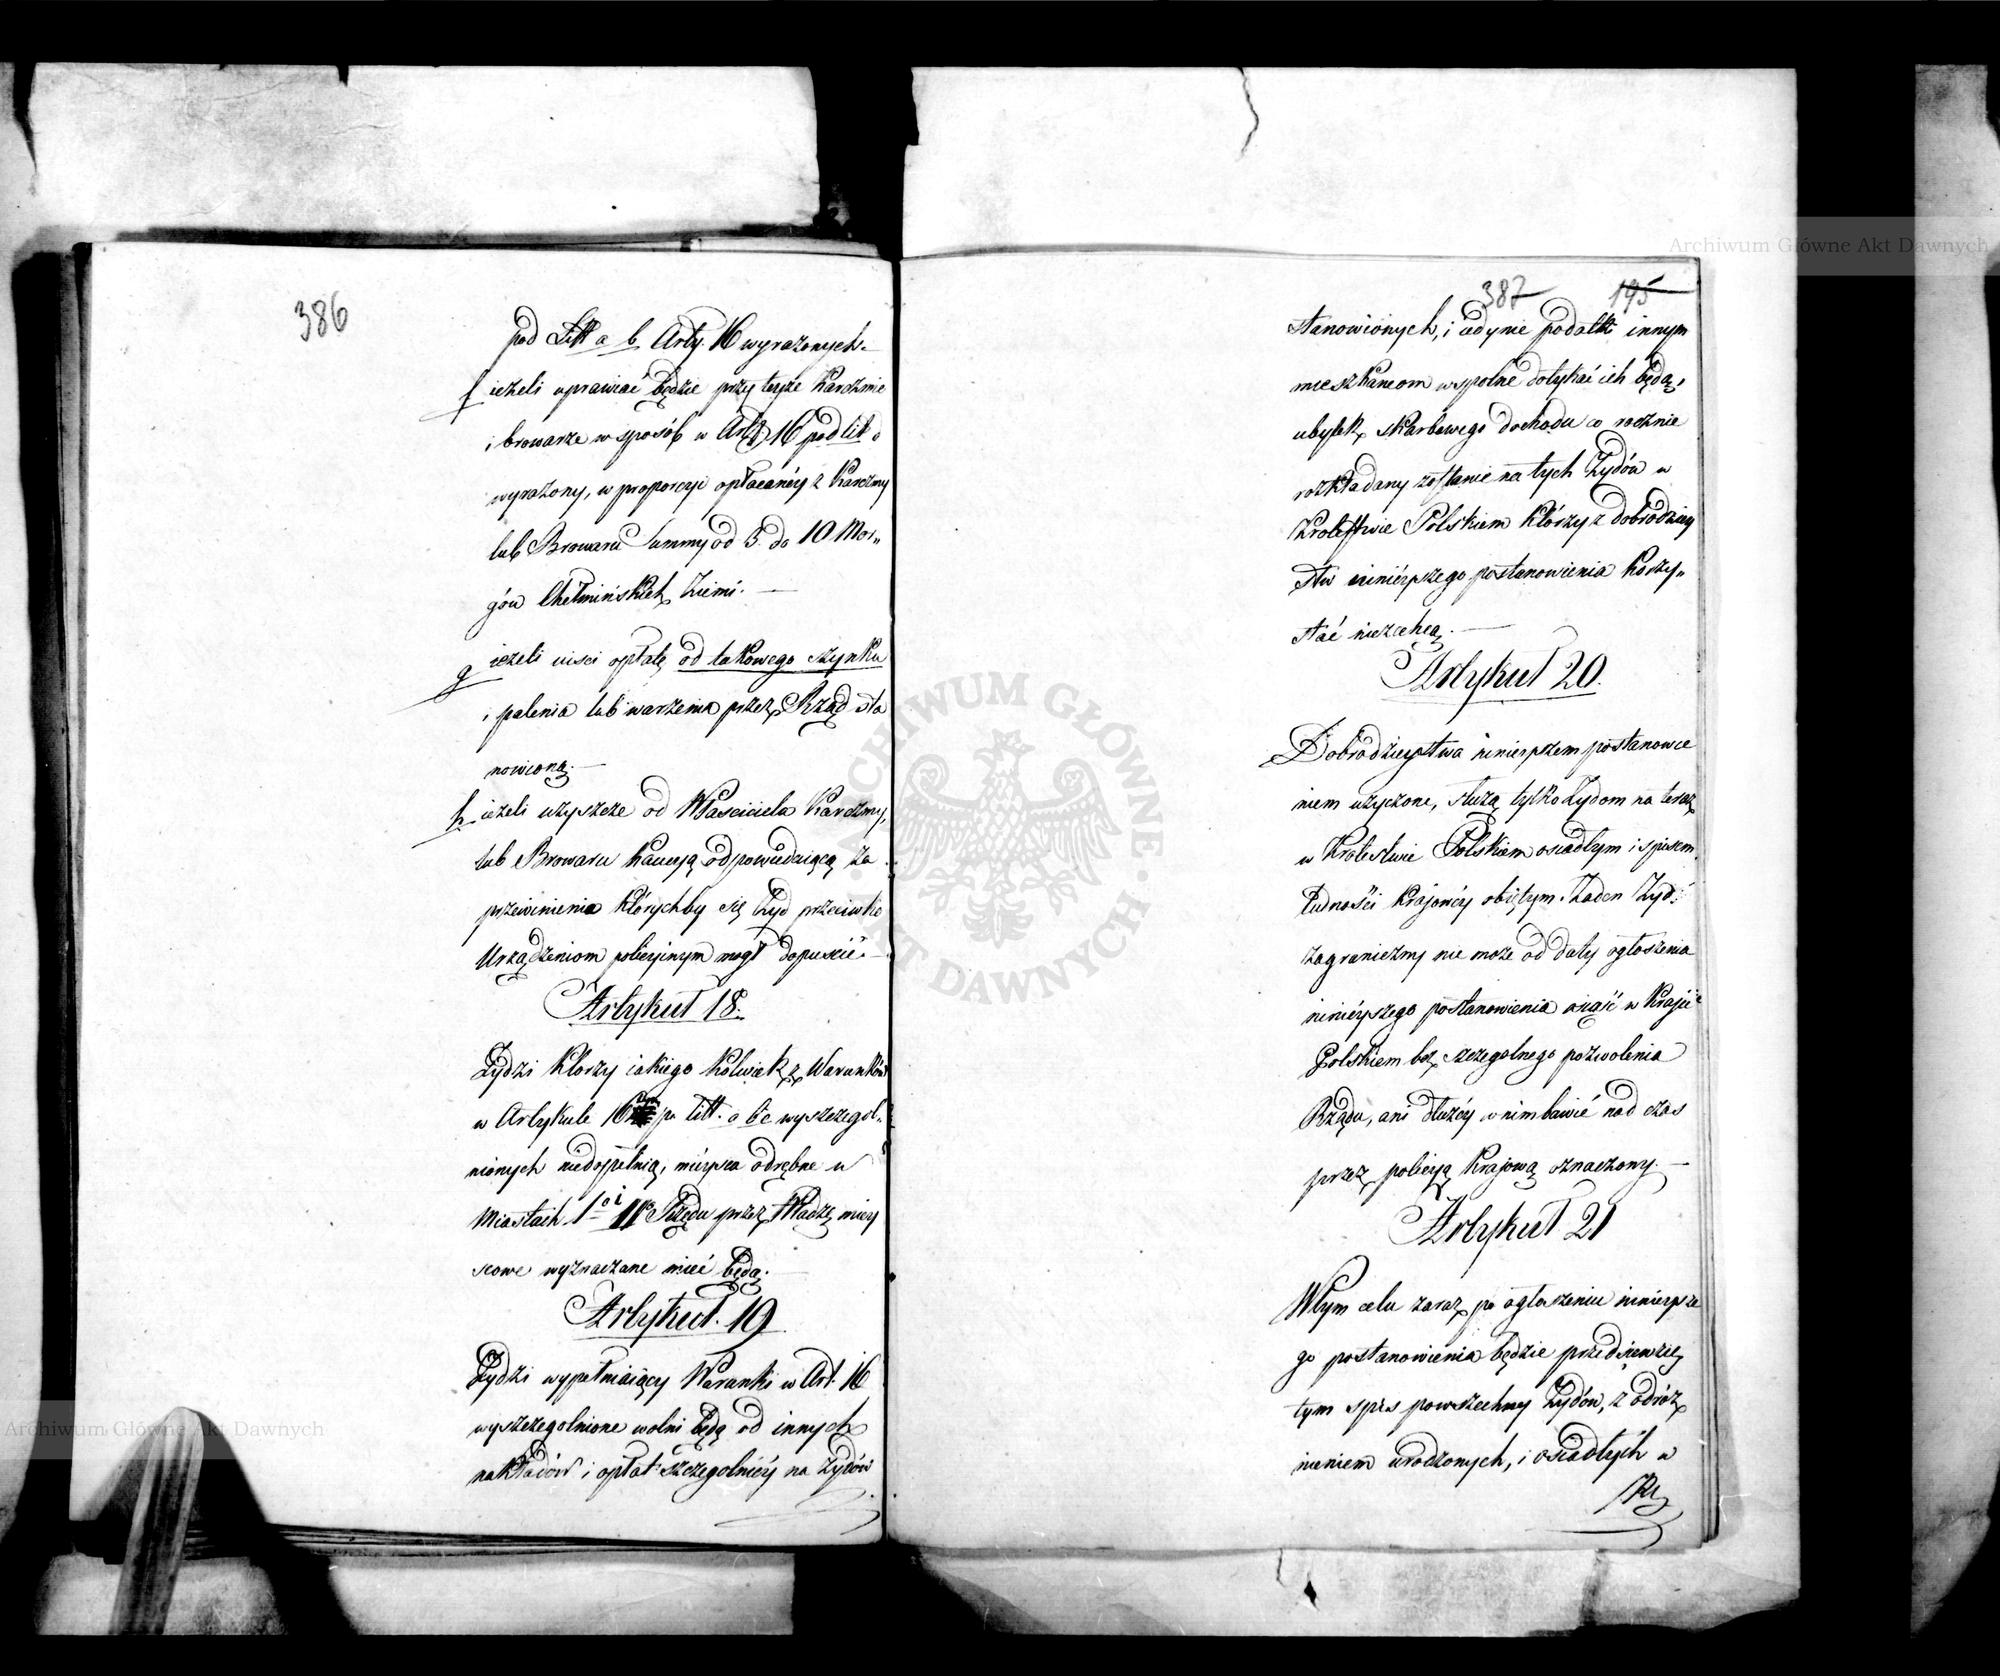 386
pod Litt a b Arty. 16 wyrażonych.
f ieżeli uprawiać będzie przy teyże Karczmie
i browarze w sposób w Art. 16 pod lit c
wyrażony, w proporcyi opłacanéy z Karczmy
lub Browaru Summy od 5. do 10 Mor„
gów Chełmińskich Ziemi. —
g ieżeli uiści opłatę od takowego szynku
i palenia lub warzenia przez Rząd sta
nowioną. —
h ieżeli uzyszcze od Właściciela Karczmy,
lub Browaru Kaucyą odpowiedzącą za
przewinienia którychby się Żyd przeciwko
Urządzeniom policyinym mogł dopuścić. —
Artykuł 18.
Żydzi którzy iakiego kolwiek z Warunków
w Artykule 16 po litt. a b c wyszczegol„
nionych niedopełnią, mieysca odrębne w
Miastach I i II Rzędu przez Władze miey
scowe wyznaczane mieć będą. —
Artykuł. 19
Żydzi wypełniaiący Warunki w Art. 16
wyszczegolnione wolni będą od innych
nakładów i opłat szczegolniéy na Żydów
387 195
stanowionych, i iedynie podatki innym
mieszkańcom wspolne dotykać ich będą,
ubytek skarbowego dochodu co rocznie
rozkładany zostanie na tych Żydów w
Krolestwie Polskiem którzy z dobrodziey
stw ninieyszego postanowienia korzy„
stać niezechcą. —
Artykuł 20.
Dobrodzieystwa ninieyszem postanowie
niem użyczone, służą tylko Żydom na teraz
w Krolestwie Polskiem osiadłym i spisem
ludności Krajowéy obiętym. Żaden Żyd
zagraniczny nie może od daty ogłoszenia
ninieyszego postanowienia osiąść w Kraju
Polskiem bez szczegolnego pozwolenia
Rządu, ani dłużéy w nim bawić nad czas
przez policyą Krajową oznaczony. —
Artykuł 21
W tym celu zaraz po ogłoszeniu ninieysze
go postanowienia będzie przedsiewzię
tym spis powszechny Żydów, z odróż
nieniem urodzonych, i osiadłych w
Archiwum Główne Akt Dawnych
Archiwum Główne Akt Dawnych
ARCHIWUM GŁÓWNE AKT DAWNYCH